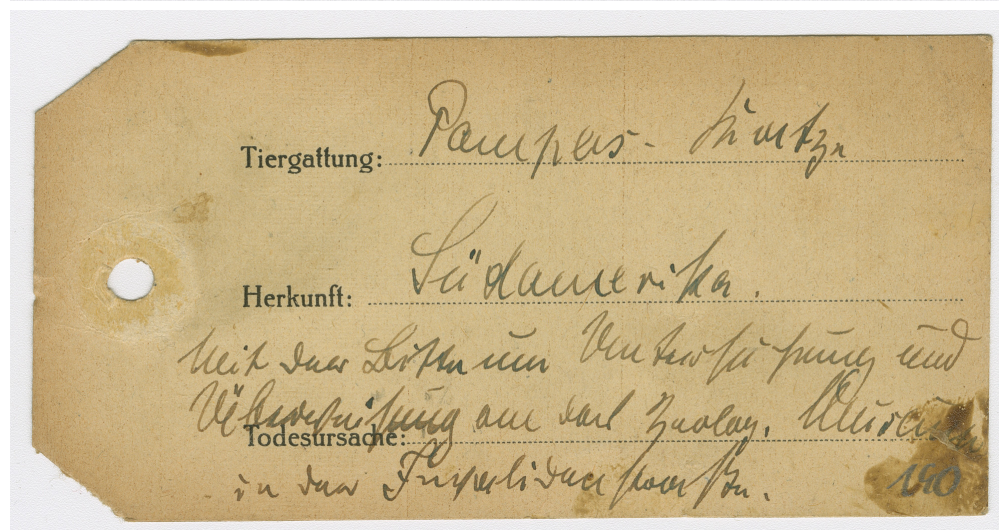 Tiergattung: Pampas-Katze
Herkunft: Südamerika.
Mit der Bitte um Untersuchung und
Überweisung an das Zoolog. Museum
Todesursache:
in der Invalidenstraße.
150